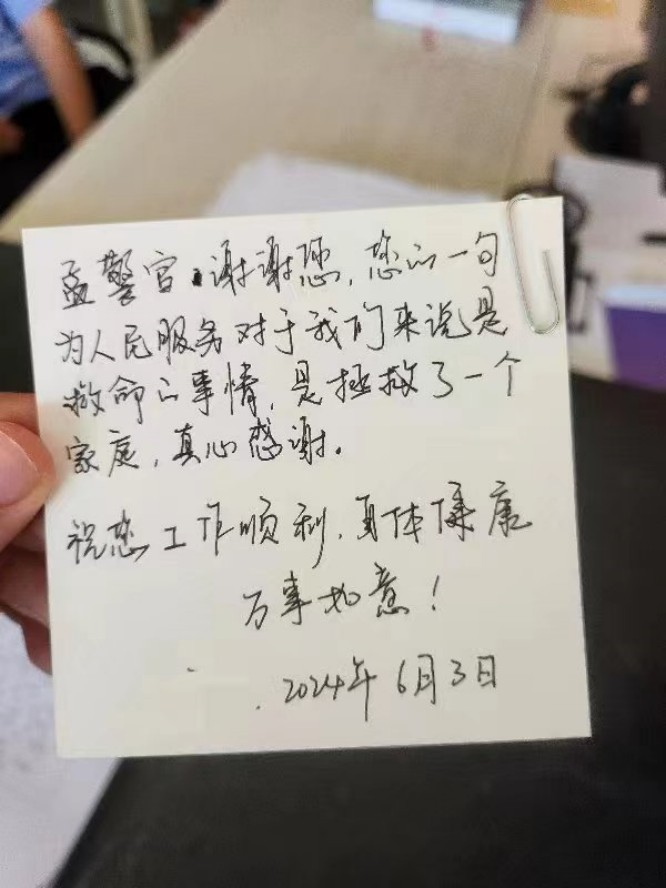 孟警官，谢谢您，您的一句
为人民服务对于我们来说是
救命的事情，是拯救了一个
家庭，真心感谢。
祝您工作顺利，身体健康
万事如意！
2024年6月3日